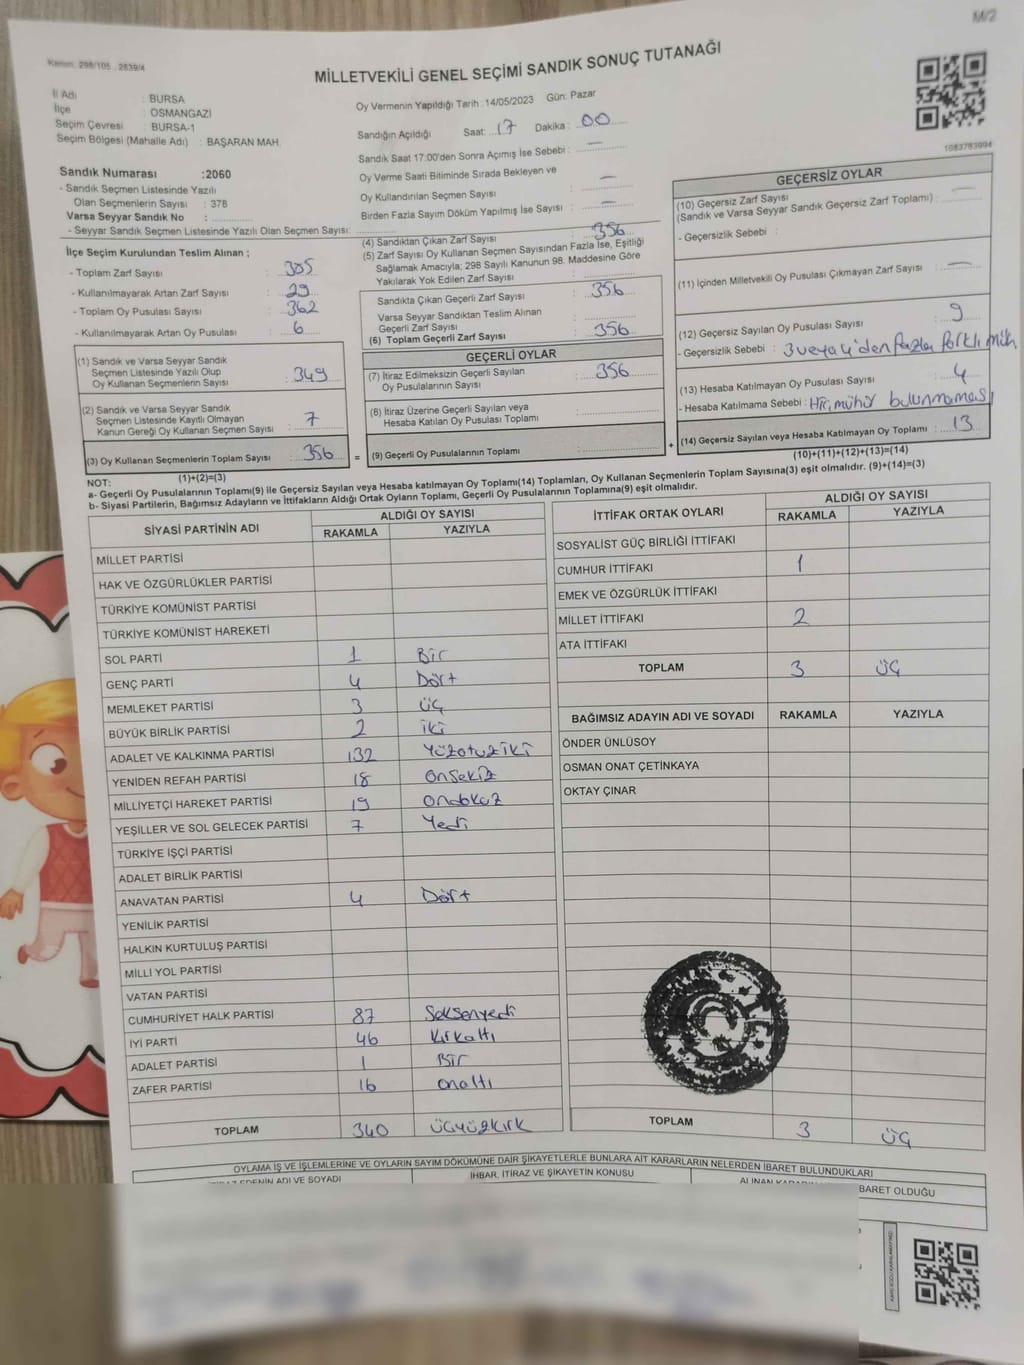 M/2
Kanun: 298/105 , 2839/4
MİLLETVEKİLİ GENEL SEÇİMİ SANDIK SONUÇ TUTANAĞI
İl Adı : BURSA
İlçe : OSMANGAZİ
Seçim Çevresi : BURSA-1
Seçim Bölgesi (Mahalle Adı) : BAŞARAN MAH.
Oy Vermenin Yapıldığı Tarih : 14/05/2023 Gün: Pazar
Sandığın Açıldığı Saat: 17 Dakika : 00
Sandık Saat 17:00'den Sonra Açımış İse Sebebi : —
Oy Verme Saati Bitiminde Sırada Bekleyen ve
Oy Kullandırılan Seçmen Sayısı : —
Birden Fazla Sayım Döküm Yapılmış İse Sayısı : —
1083783994
Sandık Numarası :2060
- Sandık Seçmen Listesinde Yazılı
Olan Seçmenlerin Sayısı : 378
Varsa Seyyar Sandık No :
- Seyyar Sandık Seçmen Listesinde Yazılı Olan Seçmen Sayısı:
İlçe Seçim Kurulundan Teslim Alınan ;
- Toplam Zarf Sayısı : 385
- Kullanılmayarak Artan Zarf Sayısı : 29
- Toplam Oy Pusulası Sayısı : 362
- Kullanılmayarak Artan Oy Pusulası : 6
(1) Sandık ve Varsa Seyyar Sandık
Seçmen Listesinde Yazılı Olup
Oy Kullanan Seçmenlerin Sayısı : 349
(2) Sandık ve Varsa Seyyar Sandık
Seçmen Listesinde Kayıtlı Olmayan
Kanun Gereği Oy Kullanan Seçmen Sayısı : 7
(3) Oy Kullanan Seçmenlerin Toplam Sayısı : 356
(1)+(2)=(3)
(4) Sandıktan Çıkan Zarf Sayısı : 356
(5) Zarf Sayısı Oy Kullanan Seçmen Sayısından Fazla İse, Eşitliği
Sağlamak Amacıyla; 298 Sayılı Kanunun 98. Maddesine Göre
Yakılarak Yok Edilen Zarf Sayısı :
Sandıkta Çıkan Geçerli Zarf Sayısı : 356
Varsa Seyyar Sandıktan Teslim Alınan
Geçerli Zarf Sayısı :
(6) Toplam Geçerli Zarf Sayısı : 356
GEÇERLİ OYLAR
(7) İtiraz Edilmeksizin Geçerli Sayılan
Oy Pusulalarının Sayısı : 356
(8) İtiraz Üzerine Geçerli Sayılan veya
Hesaba Katılan Oy Pusulası Toplamı :
= (9) Geçerli Oy Pusulalarının Toplamı :
GEÇERSİZ OYLAR
(10) Geçersiz Zarf Sayısı
(Sandık ve Varsa Seyyar Sandık Geçersiz Zarf Toplamı) : —
- Geçersizlik Sebebi :
(11) İçinden Milletvekili Oy Pusulası Çıkmayan Zarf Sayısı : —
(12) Geçersiz Sayılan Oy Pusulası Sayısı : 9
- Geçersizlik Sebebi : 3 veya 4'den fazla farklı müh
(13) Hesaba Katılmayan Oy Pusulası Sayısı : 4
- Hesaba Katılmama Sebebi : Hiç mühür bulunmaması
+ (14) Geçersiz Sayılan veya Hesaba Katılmayan Oy Toplamı : 13
(10)+(11)+(12)+(13)=(14)
NOT:
a- Geçerli Oy Pusulalarının Toplamı(9) ile Geçersiz Sayılan veya Hesaba katılmayan Oy Toplamı(14) Toplamları, Oy Kullanan Seçmenlerin Toplam Sayısına(3) eşit olmalıdır. (9)+(14)=(3)
b- Siyasi Partilerin, Bağımsız Adayların ve İttifakların Aldığı Ortak Oyların Toplamı, Geçerli Oy Pusulalarının Toplamına(9) eşit olmalıdır.
SİYASİ PARTİNİN ADI ALDIĞI OY SAYISI
RAKAMLA YAZIYLA
MİLLET PARTİSİ
HAK VE ÖZGÜRLÜKLER PARTİSİ
TÜRKİYE KOMÜNİST PARTİSİ
TÜRKİYE KOMÜNİST HAREKETİ
SOL PARTİ 1 Bir
GENÇ PARTİ 4 Dört
MEMLEKET PARTİSİ 3 Üç
BÜYÜK BİRLİK PARTİSİ 2 iki
ADALET VE KALKINMA PARTİSİ 132 Yüzotuziki
YENİDEN REFAH PARTİSİ 18 Onsekiz
MİLLİYETÇİ HAREKET PARTİSİ 19 Ondokuz
YEŞİLLER VE SOL GELECEK PARTİSİ 7 Yedi
TÜRKİYE İŞÇİ PARTİSİ
ADALET BİRLİK PARTİSİ
ANAVATAN PARTİSİ 4 Dört
YENİLİK PARTİSİ
HALKIN KURTULUŞ PARTİSİ
MİLLİ YOL PARTİSİ
VATAN PARTİSİ
CUMHURİYET HALK PARTİSİ 87 Seksenyedi
İYİ PARTİ 46 Kırkaltı
ADALET PARTİSİ 1 Bir
ZAFER PARTİSİ 16 onaltı
TOPLAM 340 üçyüzkırk
İTTİFAK ORTAK OYLARI ALDIĞI OY SAYISI
RAKAMLA YAZIYLA
SOSYALİST GÜÇ BİRLİĞİ İTTİFAKI
CUMHUR İTTİFAKI 1
EMEK VE ÖZGÜRLÜK İTTİFAKI
MİLLET İTTİFAKI 2
ATA İTTİFAKI
TOPLAM 3 ÜÇ
BAĞIMSIZ ADAYIN ADI VE SOYADI RAKAMLA YAZIYLA
ÖNDER ÜNLÜSOY
OSMAN ONAT ÇETİNKAYA
OKTAY ÇINAR
TOPLAM 3 ÜÇ
OYLAMA İŞ VE İŞLEMLERİNE VE OYLARIN SAYIM DÖKÜMÜNE DAİR ŞİKAYETLERLE BUNLARA AİT KARARLARIN NELERDEN İBARET BULUNDUKLARI
EDENİN ADI VE SOYADI İHBAR, İTİRAZ VE ŞİKAYETİN KONUSU ALINAN BARET OLDUĞU